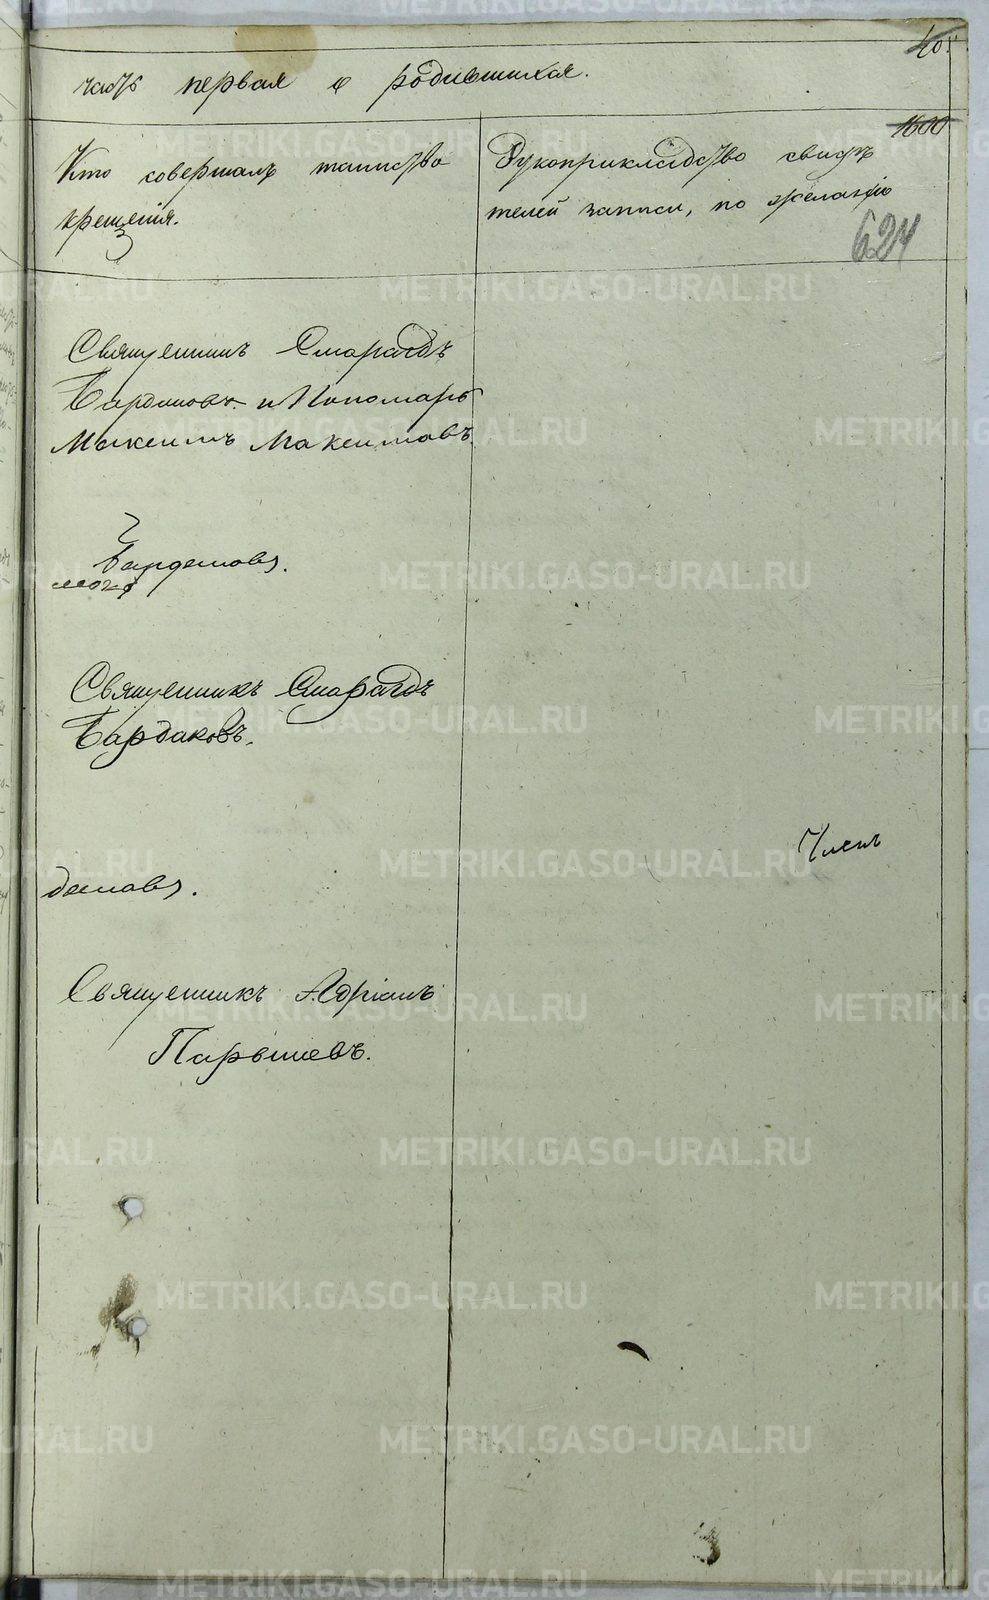 405
часть первая о родившихся.
1600
Кто совершалъ таинство
крещенія.
Рукоприкладство свидѣ
телей записи, по желанію
624
Священникъ Смарагдъ
Бардаковъ и Пономарь
Максимъ Максимовъ
Священникъ Смарагдъ
Бардаковъ.
Священникъ Адріанъ
Парышевъ.
METRIKI.GASO-URAL.RU